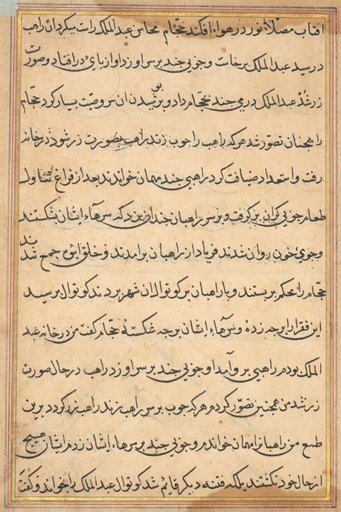 آفتاب مصلا نور در هوا افکند حجام محاسن عبد الملک راست میکرد آن راهب
در رسید عبد الملک برخاست و چوبی چند بر سر او زد او از پای در افتاد و صورت
زر شد عبد الملک درمی چند بحجام داد و بپوشیدن آن سر وصیت بسیار کرد حجام
را همچنان تصور شد هر که راهب را چوب زند راهب بصورت زر شود در خانه
رفت و استعداد ضیافت کرد راهبی چند مهمان خواند بعد از فراغ تناول
طعام چوبی گران بر گرفت و بر سر راهبان چند زد که سرهاء ایشان بشکست
و جوی خون روان شد فریاد از راهبان برآمد و خلق انبوه جمع شدند
حجام را محکم بر بستند و با راهبان بر کوتوال آن شهر بردند کوتوال پرسید
این فقرا را بر چه زدۀ و سرهاء ایشان بر چه شکستۀ حجام گفت من در خانه عبد
الملک بودم راهبی بر وی آمد او چوبی چند بر سر او زد راهب در حال صورت
زر شد من همچنین تصور کردم هر که چوب بر سر راهب زند راهب زر گردد برین
طمع من راهبان را مهمان خواندم و چوبی چند بر سرهاء ایشان زدم ایشان هیچ
از حال خود نگشتند بلکه فتنه دیگر قایم شد کوتوال عبد الملک را بخواند و گفت